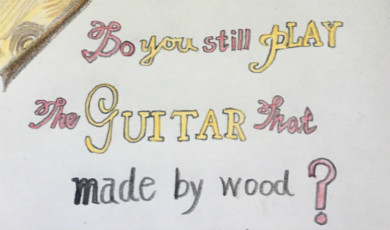 Do you still PLAY
The GUITAR That
made by wood ?